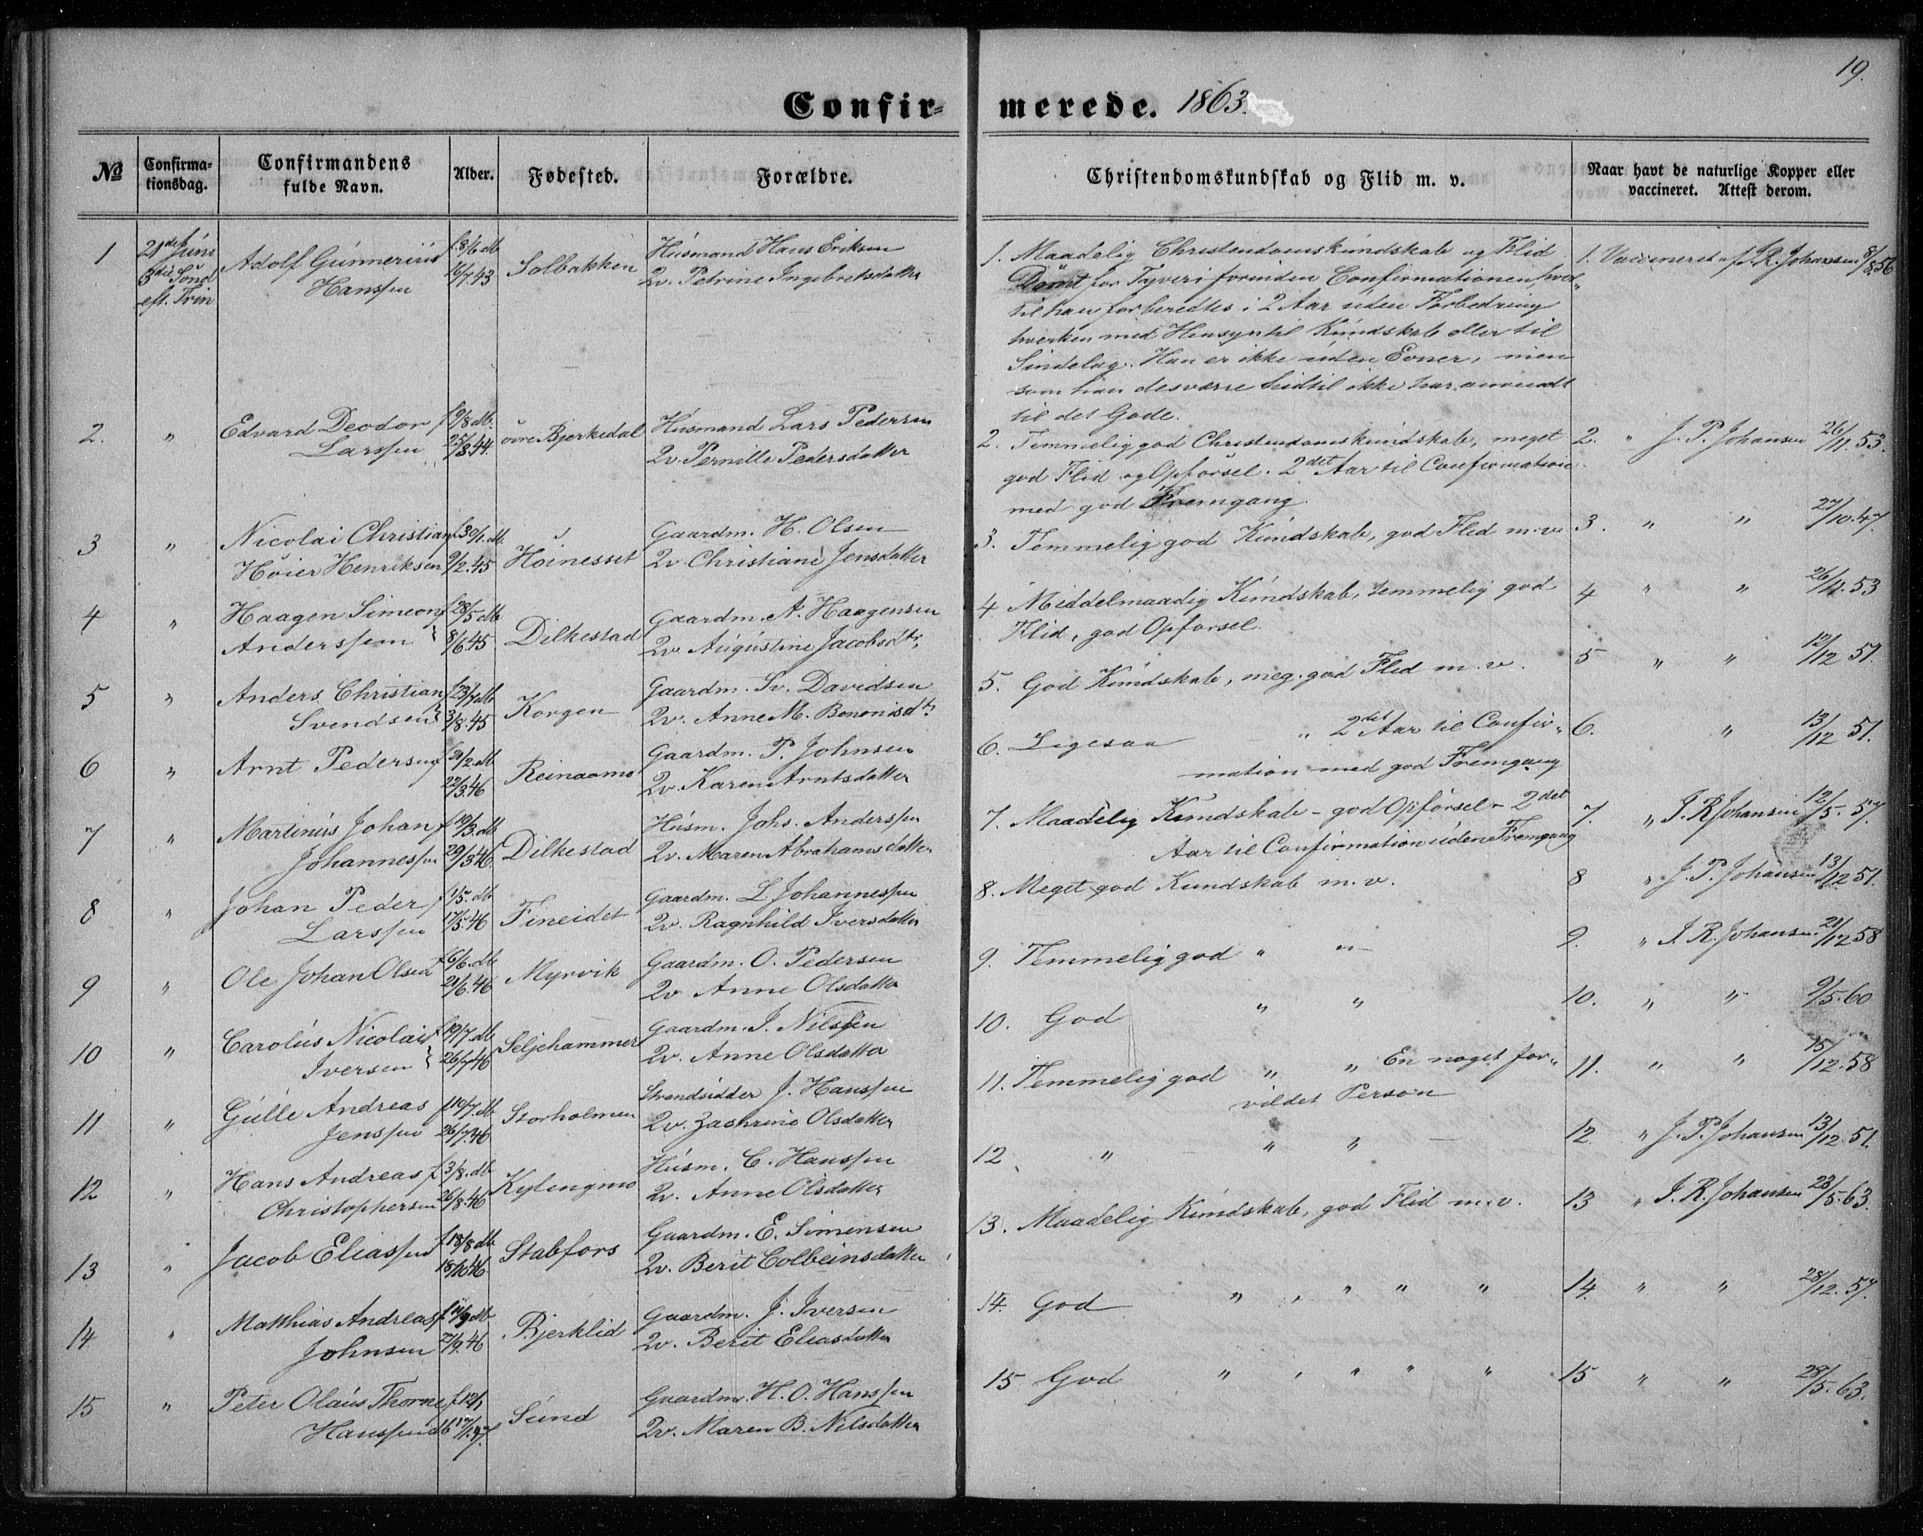 19.
Confirmerede. 1863.
No
Confirmationsdag.
Confirmandens fulde Navn.
Alder.
Fødested.
Forældre.
Christendomskundskab og Flid m. v.
Naar havt de naturlige Kopper eller vaccineret. Attest derom.
1
21de Juni
5te Sønd
eft. Trin
Adolf Gunnerius
Hanssen
f 8/6 db
16/7.43
Solbakken
Husmand Hans Eriksen
Qv. Petrine Ingebretsdatter
1. Maadelig Christendomskundskab og Flid
Dømt for Tyveri forinden Confirmationen, hvor-
til han forberedtes i 2 Aar uden Forbedring
hverken med Hensyn til Kundskab eller til
Sindelag. Han er ikke uden Evner, men
som han desværre hidtil ikke har anvendt
til det Gode.
1. Vaccineret af J. R. Johansen 8/8.56
2.
"
Edvard Deodor
Larssen
f 9/8 db.
25/8.44.
øvre Bjerkedal
Husmand Lars Pedersen
Qv. Pernille Pedersdatter
2. Temmelig god Christendomskundskab, meget
god Flid og Opførsel. 2det Aar til Confirmation
med god Fremgang.
2. " J. P. Johansen 26/11.53.
3
"
Nicolai Christian
Høier Henriksen
f 30/1. db
9/2.45
Høinesset
Gaardm. H. Olsen
Qv Christiane Jensdatter
3. Temmelig god Kundskab, god Flid m.v.
3. " " 27/10.47.
4
"
Haagen Simeon
Anderssen
f 28/5 db
8/6.45
Dilkestad
Gaardm. A. Haagensen
Qv Augustine Jacobsdtr.
4 Middelmaadig Kundskab, temmelig god
Flid, god Opførsel.
4 " " 26/11.53
5
"
Anders Christian
Svendsen
f 23/7 db
3/8.45
Korgen
Gaardm. Sv. Davidsen
Qv. Anne M. Benonisdtr.
5. God Kundskab, meg. god Flid m. v.
5 " " 12/12 51.
6
"
Arnt Pedersen
22/3.46
Reinaamo
Gaardm. P. Johnsen
Qv. Karen Arntsdatter
6. Ligesaa " 2det Aar til Confir-
mation med god Fremgang
6. " 13/12 51.
7
"
Martinus Johan
Johannessen
f 19/3. db
29/3 46
Dilkestad
Husm. Johs. Anderssen
Qv. Maren Abrahamsdatter
7. Maadelig Kundskab - god Opførsel - 2det
Aar til Confirmation uden Fremgang
7. " J. R Johansen 12/5.57.
8
"
Johan Peder
Larssen
f 1/5. db
17/5.46
Fineidet
Gaardm. L Johannessen
Qv. Ragnhild Iversdatter
8. Meget god Kundskab m. v.
8 " J. P. Johansen 13/12 51.
9
"
Ole Johan Olsen
f 6/6. db
21/6.46
Myrvik
Gaardm. O. Pedersen
Qv Anne Olsdatter
9. Temmelig god " "
9. " J. R. Johansen 21/12 58
10
"
Carolus Nicolai
Iversen
f 19/7. db
26/7 46
Seljehammer
Gaardm. I. Nilssen
Qv. Anne Olsdatter
10. God " "
10. " " 9/5.60
11
"
Gulle Andreas
Jenssen
f 10/7. db
26/7.46
Storholmen
Strandsidder J. Hanssen
Qv. Zachrine Olsdatter
11. Temmelig god " " En noget for-
vildet Person
11. " " 15/12.58
12
"
Hans Andreas
Christophersen
f 3/8. db
26/8.46
Kylingmo
Husm. C. Hanssen
Qv. Anne Olsdatter
12 " " "
12. " J. P. Johansen 13/12.51.
13
"
Jacob Eliassen
f 18/8 db
18/10 46
Stabfors
Gaardm. E. Simensen
Qv. Berit Colbeinsdatter
13. Maadelig Kundskab, god Flid m. v.
13 " J. R. Johansen 23/5.63.
14
"
Matthias Andreas
Johnsen
Bjerklid
Gaardm. J. Iversen
Qv. Berit Eliasdatter
14. God " , " " "
14. " " 28/12.57.
15
"
Peter Olaus Thorne
Hanssen
f 12/1
db 17/1.47.
Sund
Gaardm. H. O. Hanssen
Qv. Maren B. Nilsdatter
15 God " , " " "
15 " " 28/5.63.